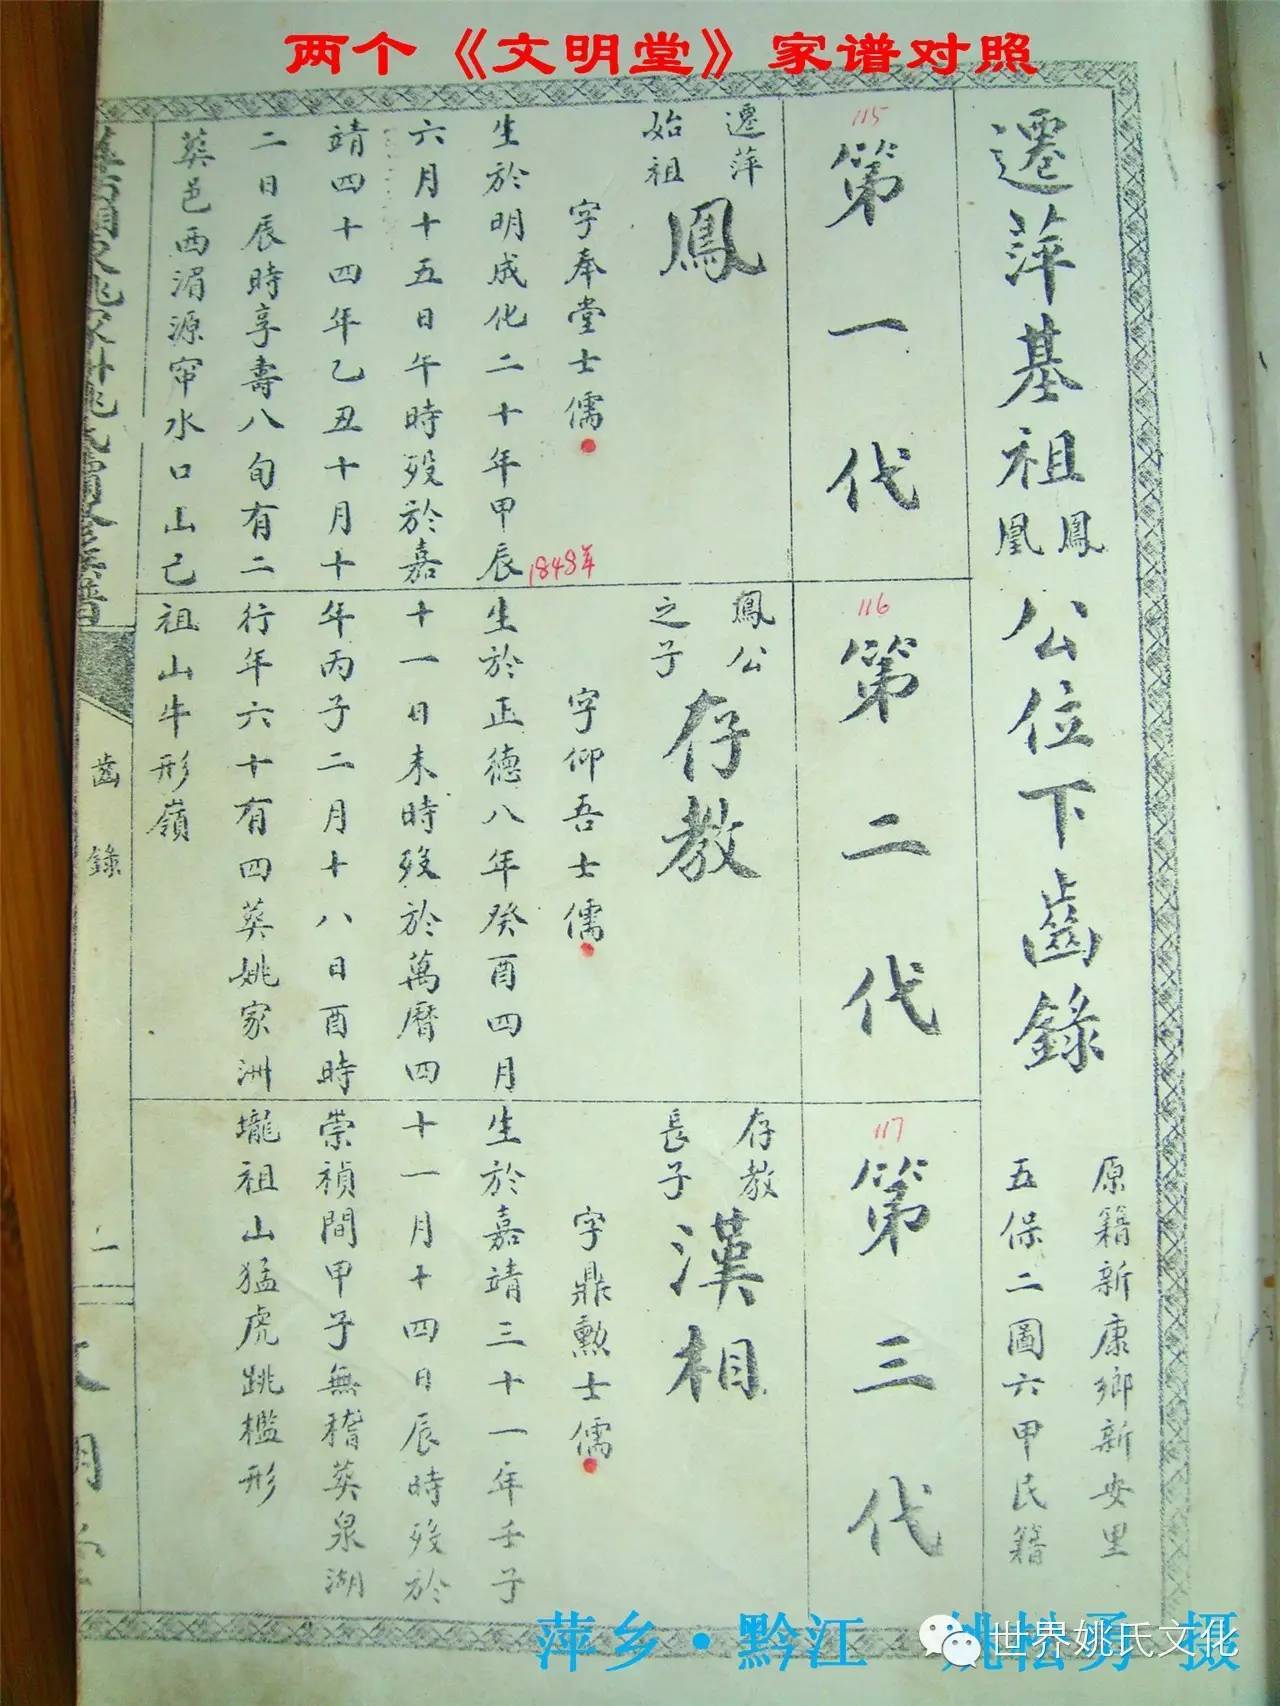 两个《文明堂》家谱对照
遷萍基祖鳳凰公位下齒錄
原籍新康鄉新安里
五保二圖六甲民籍
115
第一代
遷萍
始祖
鳳
字奉堂士儒
生於明成化二十年甲辰
1848年
六月十五日午時歿於嘉
靖四十四年乙丑十月十
二日辰時享壽八旬有二
葬邑西湄源窂水口山己
116
第二代
鳳公
之子
存教
字仰吾士儒
生於正德八年癸酉四月
十一日未時歿於萬曆四
年丙子二月十八日酉時
行年六十有四葬姚家洲
祖山牛形嶺
117
第三代
存教
長子
漢相
字鼎勲士儒
生於嘉靖三十一年壬子
十一月十四日辰時歿於
崇禎間甲子無稽葬泉湖
壠祖山猛虎跳檻形
齒錄
一
萍乡·黔江 姚松勇 摄
世界姚氏文化